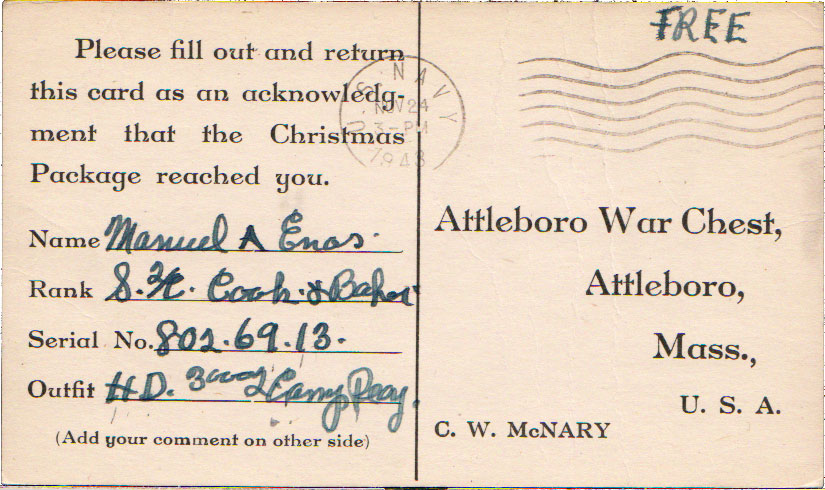 Please fill out and return
this card as an acknowledg-
ment that the Christmas
Package reached you.
Name Manuel A Enos.
Rank S. 2/c. Cook & Baker
Serial No. 802.69.13.
Outfit HD. Camp Peary.
(Add your comment on other side)
FREE
U.S. NAVY
NOV 24
3-PM
1943
Attleboro War Chest,
Attleboro,
Mass.,
U. S. A.
C. W. McNARY